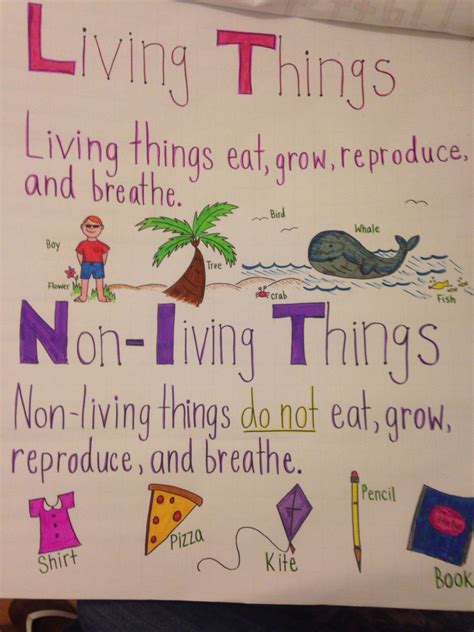 Living Things
Living things eat, grow, reproduce,
and breathe.
Bird
Boy
Whale
Tree
Flower
crab
Fish
Non-living Things
Non-living things do not eat, grow,
reproduce, and breathe.
Pencil
Pizza
Shirt
Kite
Book